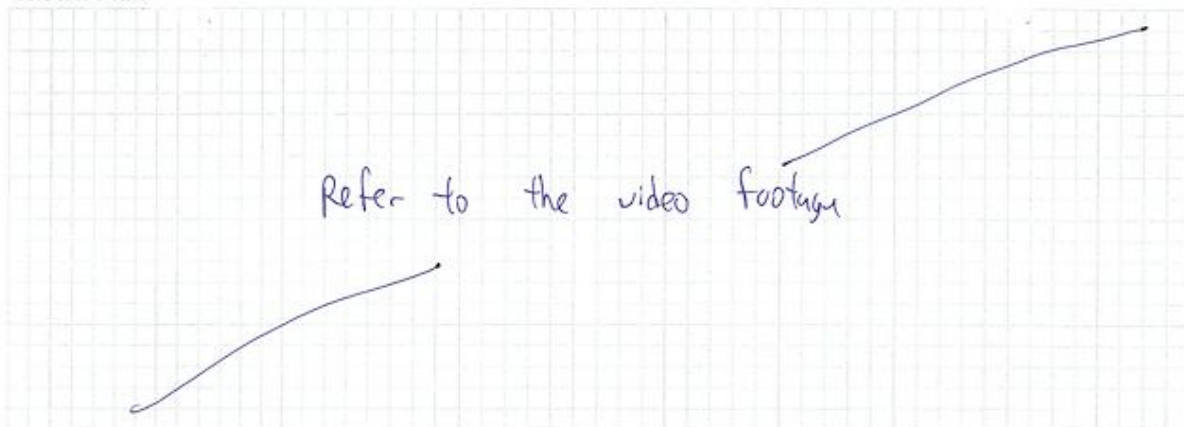 Refer to the video footage